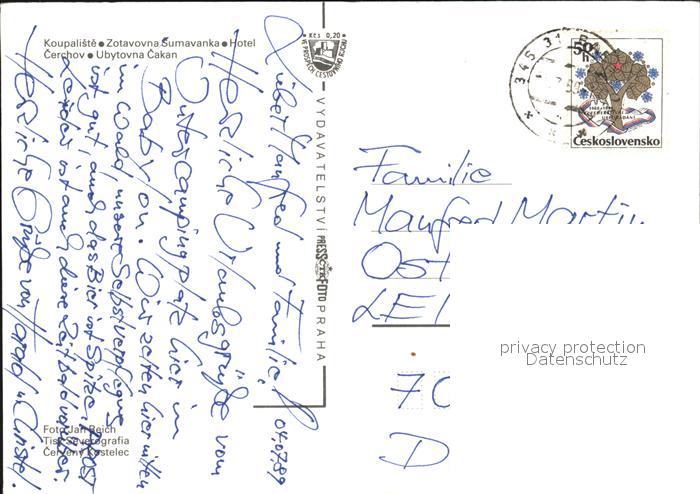 Koupaliště ● Zotavovna Šumavanka ● Hotel
Čerchov ● Ubytovna Čakan
Kčs 0,20
VE PROSPĚCH CESTOVNÍHO RUCHU
VYDAVATELSTVÍ PRESSFOTO PRAHA
Foto Jan Reich
Tisk Severografia
Červený Kostelec
04.07.89
Lieber Manfred und Familie!
Herzliche Urlaubsgrüße vom
Campingplatz hier in
Babylon. Wir zelten hier mitten
im Wald, unsere Selbstverpflegung
ist gut, auch das Bier ist Spitze. PROST
Leider ist auch diese Zeit bald vorüber.
Herzliche Grüße von Harald u. Christel.
345 3
50h
Československo
Familie
Manfred Martin
Ost
LEI
70
D
privacy protection
Datenschutz